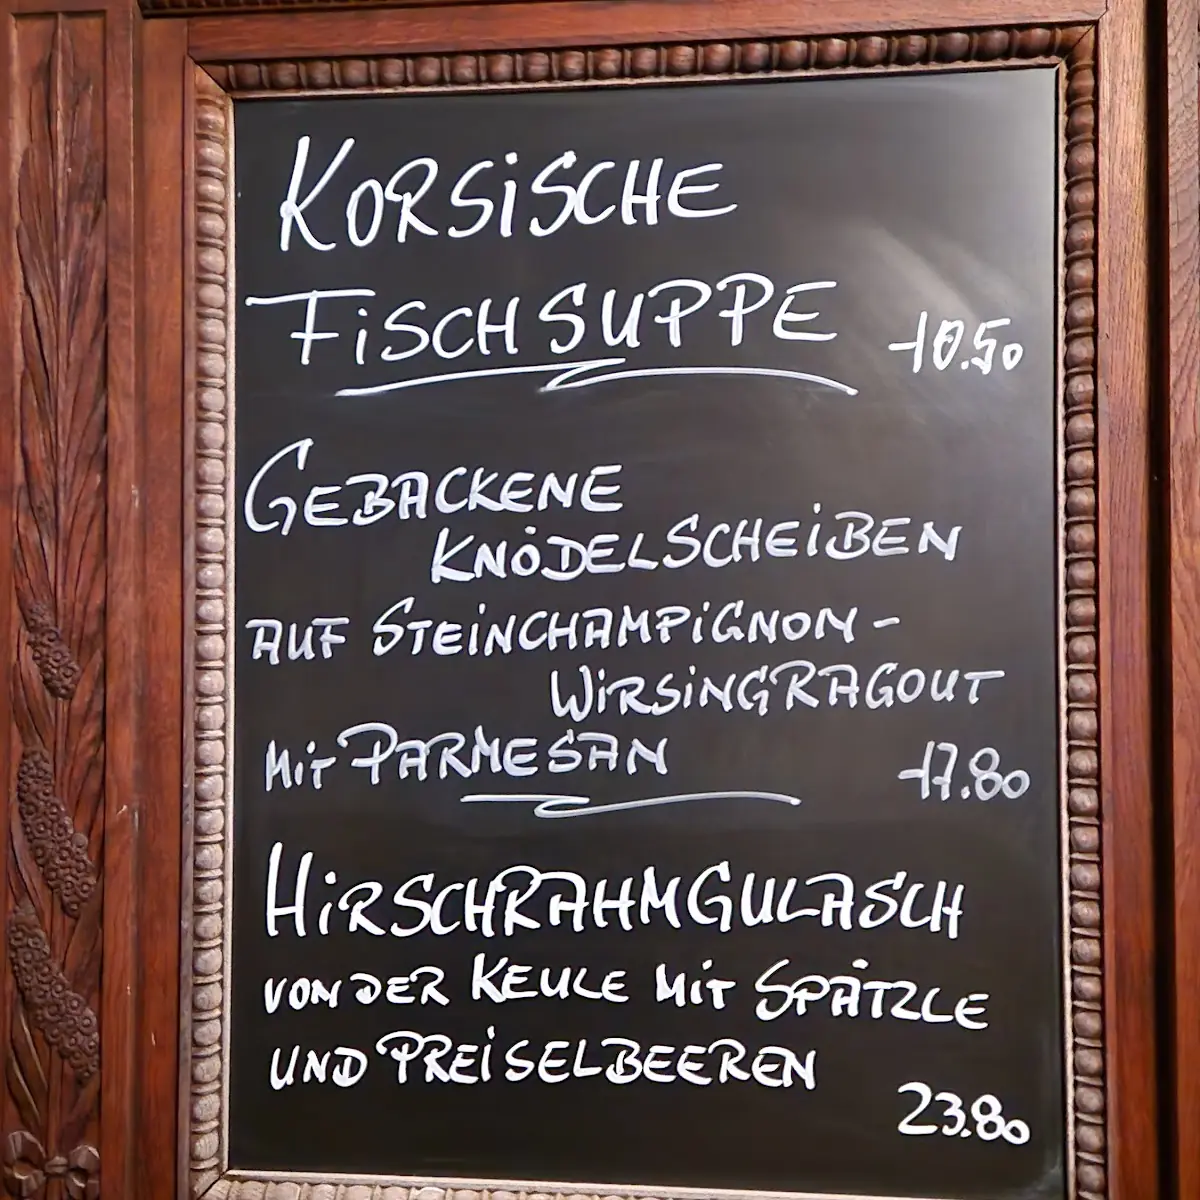 KORSISCHE
FISCHSUPPE 10.50
GEBACKENE
KNÖDELSCHEIBEN
AUF STEINCHAMPIGNON-
WIRSINGRAGOUT
MIT PARMESAN 17.80
HIRSCHRAHMGULASCH
VON DER KEULE MIT SPÄTZLE
UND PREISELBEEREN
23.80